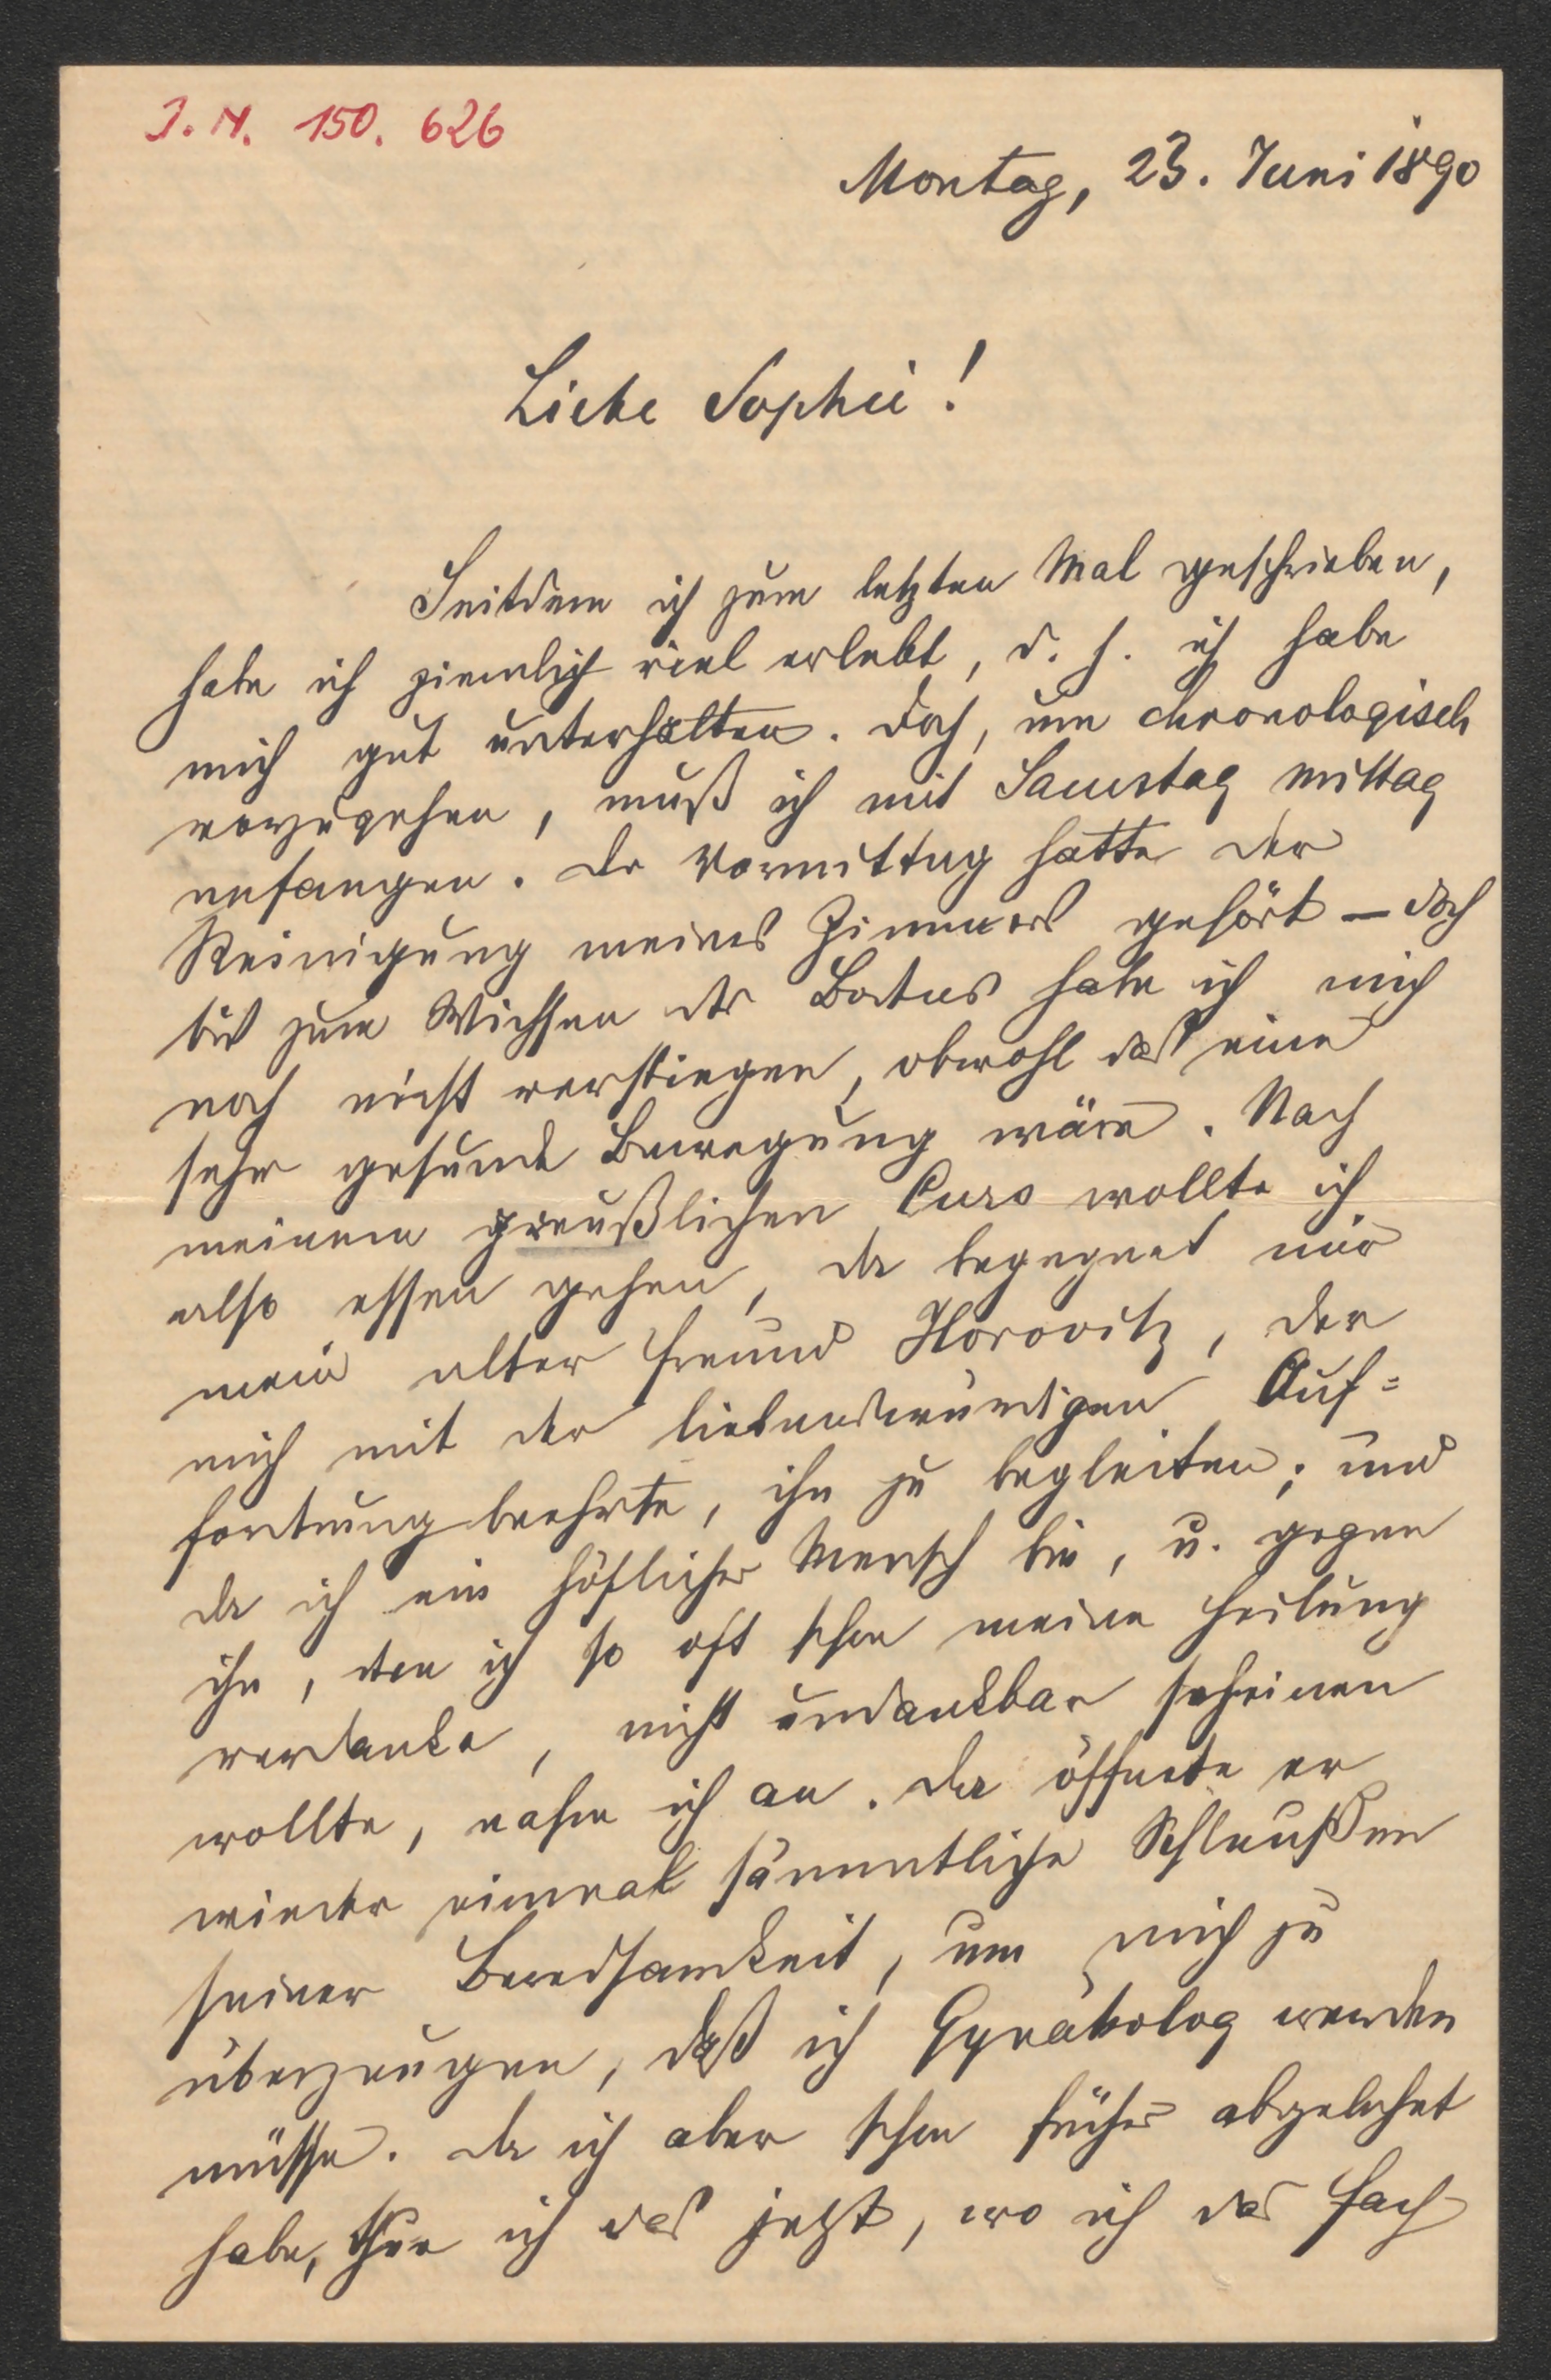 J.N. 150.626
Montag, 23. Juni 1890
Liebe Sophie!
Seitdem ich zum letzten Mal geschrieben,
habe ich ziemlich viel erlebt, d. h. ich habe
mich gut unterhalten. Doch, um chronologisch
vorzugehen, muß ich mit Samstag mittag
anfangen. Der Vormittag hatte der
Reinigung meines Zimmers gehört – doch
bis zum Wichsen des Bodens habe ich mich
noch nicht verstiegen, obwohl das eine
sehr gesunde Bewegung wäre. Nach
meinem greußlichen Curs wollte ich
also essen gehen, da begegnet mir
mein alter Freund Horovitz, der
mich mit der liebenswürdigen Auf=
forderung beehrte, ihn zu begleiten; und
da ich ein höflicher Mensch bin, u. gegen
ihn, dem ich so oft schon meine Heilung
verdanke, nicht undankbar scheinen
wollte, nahm ich an. Da öffnete er
wieder einmal sämmtliche Schleußen
seiner Beredsamkeit, um mich zu
überzeugen, daß ich Gynäkolog werden
müsse. Da ich aber schon früher abgelehnt
habe, thue ich das jetzt, wo ich das Fach